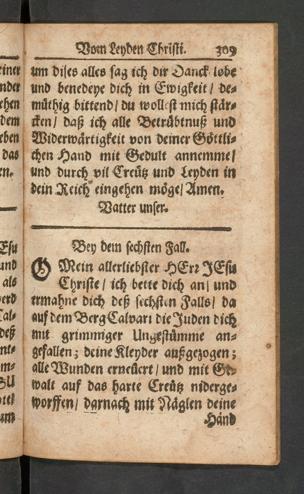 Vom Leyden Christi. 309
um dises alles sag ich dir Danck lobe
und benedeye dich in Ewigkeit / de-
müthig bittend / du wollest mich stär-
cken / daß ich alle Betrübtnuß und
Widerwärtigkeit von deiner Göttli-
chen Hand mit Gedult annemme /
und durch vil Creütz und Leyden in
dein Reich eingehen möge / Amen.
Vatter unser.
Bey dem sechsten Fall.
O Mein allerliebster HErz JEsu
Christe / ich bette dich an / und
ermahne dich deß sechsten Falls / da
auf dem Berg Calvari die Juden dich
mit grimmiger Ungestümme an-
gefallen; deine Kleyder außgezogen;
alle Wunden erneüert / und mit Ge-
walt auf das harte Creütz niderge-
worffen / darnach mit Näglen deine
Händ
einer
dem
eben
das
en.
Esu
und
als
deß